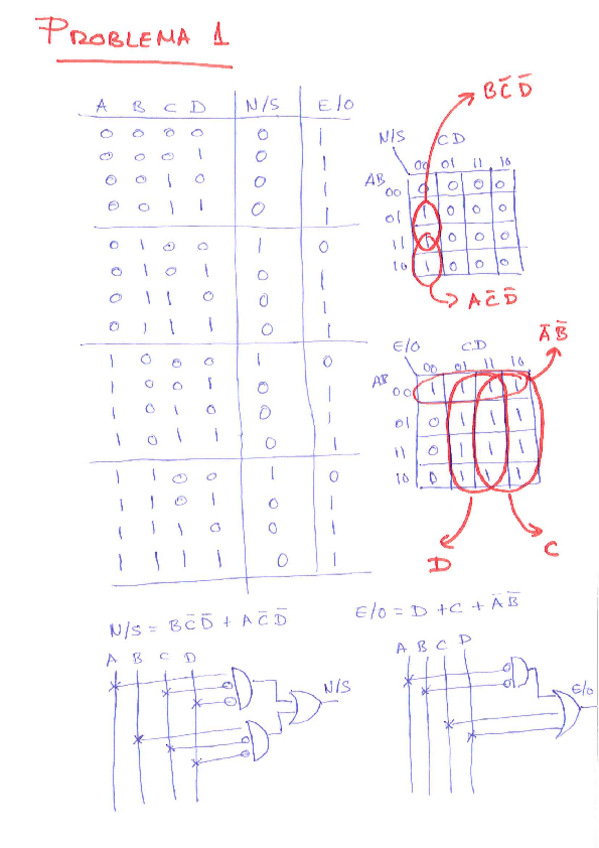 PROBLEMA 1
A B C D N/S E/O
0 0 0 0 0 1
0 0 0 1 0 1
0 0 1 0 0 1
0 0 1 1 0 1
0 1 0 0 1 0
0 1 0 1 0 1
0 1 1 0 0 1
0 1 1 1 0 1
1 0 0 0 1 0
1 0 0 1 0 1
1 0 1 0 0 1
1 0 1 1 0 1
1 1 0 0 1 0
1 1 0 1 0 1
1 1 1 0 0 1
1 1 1 1 0 1
BC̄D̄
N/S CD
00 01 11 10
AB 00 0 0 0 0
01 1 0 0 0
11 1 0 0 0
10 1 0 0 0
AC̄D̄
E/O CD
ĀB̄
00 01 11 10
AB 00 1 1 1 1
01 0 1 1 1
11 0 1 1 1
10 0 1 1 1
D C
N/S = BC̄D̄ + AC̄D̄
A B C D
N/S
E/O = D + C + ĀB̄
A B C D
E/O